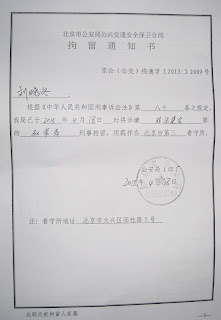 北京市公安局公共交通安全保卫分局
拘留通知书
京公（公交）拘通字【2013】2009号
刘晓冬
根据《中华人民共和国刑事诉讼法》第 八十 条之规定，
我局已于2013年4月18日 对将涉嫌 罪
的 刑事拘留，现羁押在 北京市第三 看守所。
公安局（印）
2013年4月18日
注：看守所地址 北京市大兴区团桂路3号
此联交被拘留人家属